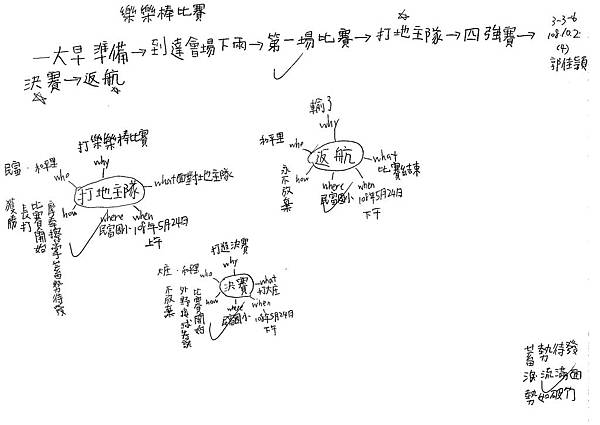 樂樂棒比賽
一大早準備→到達會場下雨→第一場比賽→打地主隊→四強賽→
決賽→返航
3-3-6
(4)
打樂樂棒比賽
why
民富.和平里
who
打地主隊
what面對地主隊
how
where
when
民富國小
108年5月24日
上午
比賽開始
長打
獲勝
輸了
why
和平里
who
返航
what
比賽結束
how
永不放棄
where
民富國小
when
108年5月24日
下午
打進決賽
why
大庄.和平里
who
決賽
what
打大庄
how
比賽開始
外野接球失誤
不放棄
where
民富國小
when
108年5月24日
下午
蓄勢待發
淚流滿面
勢如破竹